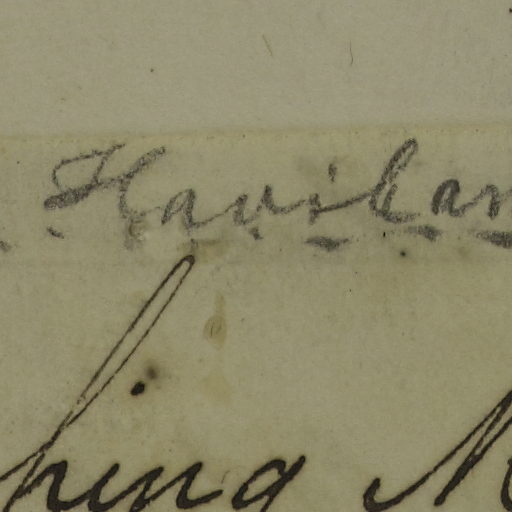 Havilan
hing M